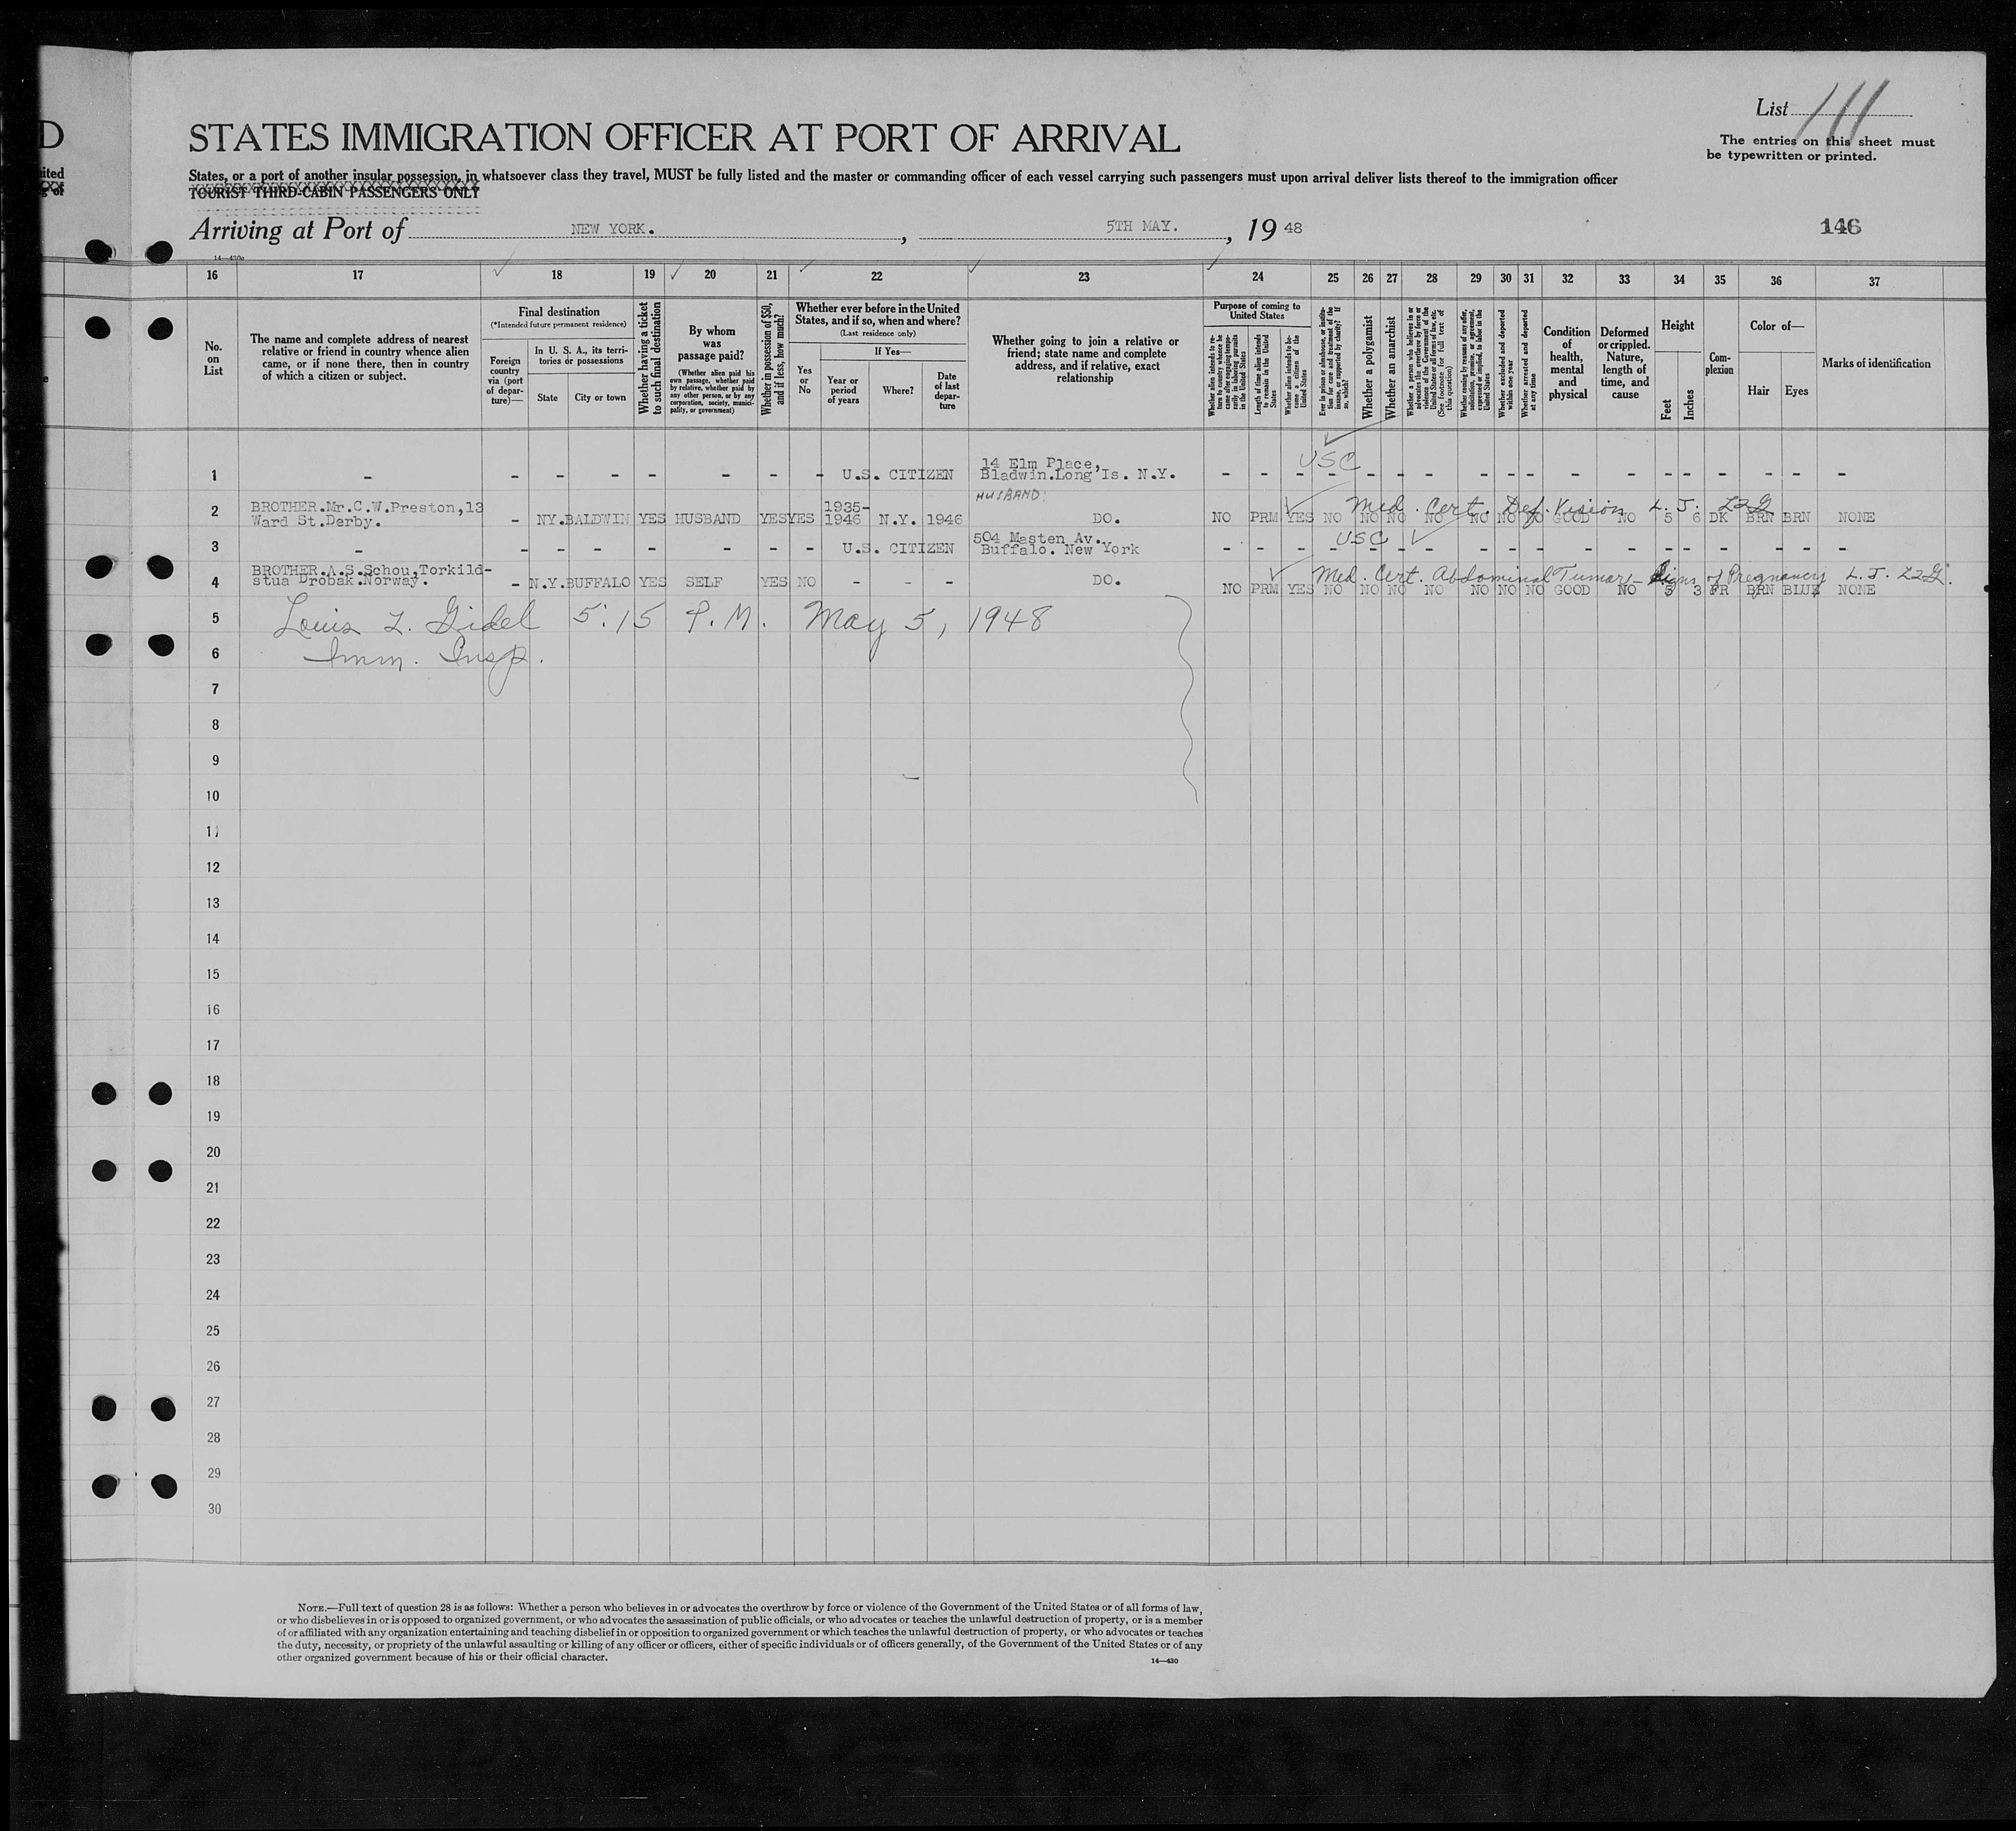 D
ited
g of
List 111
The entries on this sheet must
be typewritten or printed.
STATES IMMIGRATION OFFICER AT PORT OF ARRIVAL
States, or a port of another insular possession, in whatsoever class they travel, MUST be fully listed and the master or commanding officer of each vessel carrying such passengers must upon arrival deliver lists thereof to the immigration officer
TOURIST THIRD-CABIN PASSENGERS ONLY
Arriving at Port of NEW YORK. , 5TH MAY. , 19 48
146
14—430c
16 17 18 19 20 21 22 23 24 25 26 27 28 29 30 31 32 33 34 35 36 37
No. on List
The name and complete address of nearest
relative or friend in country whence alien
came, or if none there, then in country
of which a citizen or subject.
Final destination
(*Intended future permanent residence)
Foreign country via (port of departure)—
In U. S. A., its territories or possessions
State
City or town
Whether having a ticket to such final destination
By whom was passage paid?
(Whether alien paid his own passage, whether paid by relative, whether paid by any other person, or by any corporation, society, municipality, or government)
Whether in possession of $50, and if less, how much?
Whether ever before in the United States, and if so, when and where?
(Last residence only)
Yes or No
If Yes—
Year or period of years
Where?
Date of last departure
Whether going to join a relative or
friend; state name and complete
address, and if relative, exact
relationship
Purpose of coming to United States
Whether alien intends to return to country whence he came after engaging temporarily in laboring pursuits in the United States
Length of time alien intends to remain in the United States
Whether alien intends to become a citizen of the United States
Ever in prison or almshouse, or institution for care and treatment of the insane, or supported by charity? If so, which?
Whether a polygamist
Whether an anarchist
Whether a person who believes in or advocates the overthrow by force or violence of the Government of the United States or all forms of law, etc. (See footnote for full text of this question)
Whether coming by reasons of any offer, solicitation, promise, or agreement, expressed or implied, to labor in the United States
Whether excluded and deported within one year
Whether arrested and deported at any time
Condition of health, mental and physical
Deformed or crippled. Nature, length of time, and cause
Height
Feet
Inches
Complexion
Color of—
Hair
Eyes
Marks of identification
1 - - - - - - - - U.S. CITIZEN 14 Elm Place, Bladwin.Long Is. N.Y. - - - - - - - - - - - - - - - - - -
USC
HUSBAND:
2 BROTHER.Mr.C.W.Preston,13 Ward St.Derby. - NY.BALDWIN YES HUSBAND YES YES 1935-1946 N.Y. 1946 DO. NO PRM YES NO NO NO NO NO NO NO GOOD NO 5 6 DK BRN BRN NONE
Med. Cert. Def. Vision L. J. LLG
3 - - - - - - - - U.S. CITIZEN 504 Masten Av. Buffalo. New York - - - - - - - - - - - - - - - - - -
USC
4 BROTHER.A.S.Schou,Torkild-stua Drobak.Norway. - N.Y.BUFFALO YES SELF YES NO - - - DO. NO PRM YES NO NO NO NO NO NO NO GOOD NO 5 3 FR BRN BLUE NONE
Med. Cert. Abdominal Tumor - Signs of Pregnancy L. J. LLG.
5 Louis L. Gidel 5:15 P.M. May 5, 1948
6 Imm. Insp.
7
8
9
10
11
12
13
14
15
16
17
18
19
20
21
22
23
24
25
26
27
28
29
30
NOTE.—Full text of question 28 is as follows: Whether a person who believes in or advocates the overthrow by force or violence of the Government of the United States or of all forms of law,
or who disbelieves in or is opposed to organized government, or who advocates the assassination of public officials, or who advocates or teaches the unlawful destruction of property, or is a member
of or affiliated with any organization entertaining and teaching disbelief in or opposition to organized government or which teaches the unlawful destruction of property, or who advocates or teaches
the duty, necessity, or propriety of the unlawful assaulting or killing of any officer or officers, either of specific individuals or of officers generally, of the Government of the United States or of any
other organized government because of his or their official character.
14—430